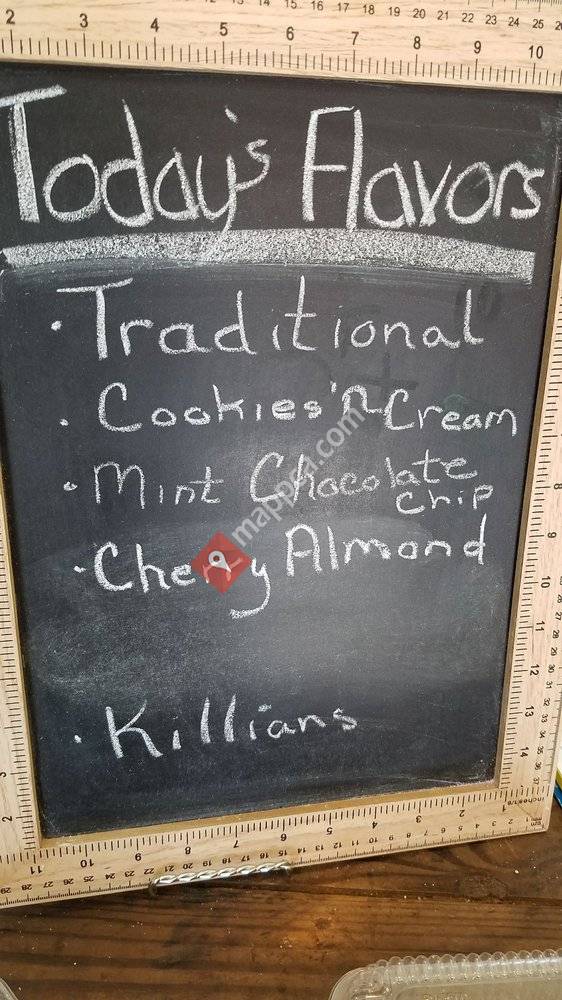 Today's Flavors
· Traditional
· Cookies 'n Cream
· Mint Chocolate
chip
· Cherry Almond
· Killians
mappea.com